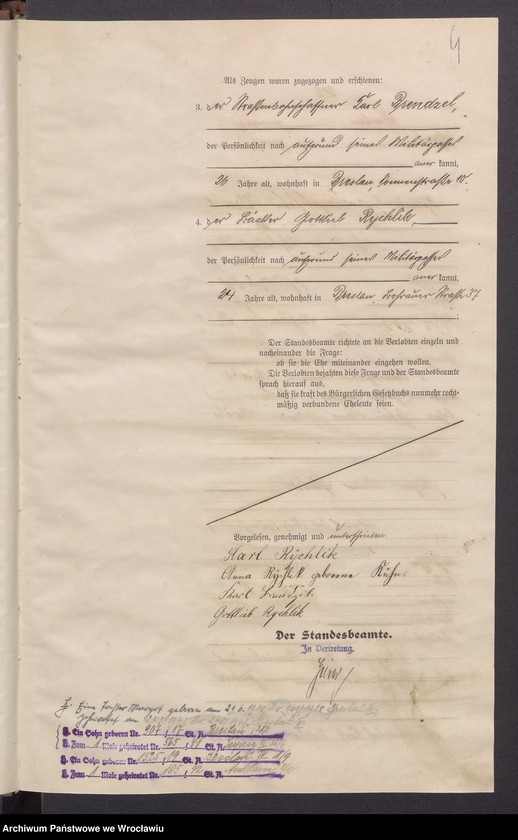 4
Als Zeugen waren zugezogen und erschienen:
3. der Straßenbahnschaffner Karl Brendzel,
der Persönlichkeit nach aufgrund seines Militärpasses
aner kannt,
26 Jahre alt, wohnhaft in Breslau,
4. der Bäcker Gottlieb Rychlik,
der Persönlichkeit nach aufgrund seines Militärpasses
aner kannt,
24 Jahre alt, wohnhaft in Breslau, Bohrauer Straße 37
Der Standesbeamte richtete an die Verlobten einzeln und
nacheinander die Frage:
ob sie die Ehe miteinander eingehen wollen.
Die Verlobten bejahten diese Frage und der Standesbeamte
sprach hierauf aus,
daß sie kraft des Bürgerlichen Gesetzbuchs nunmehr recht-
mäßig verbundene Eheleute seien.
Vorgelesen, genehmigt und unterschrieben
Karl Rychlik
Anna Rychlik geborene Kuhn.
Karl Brendzel.
Gottlieb Rychlik
Der Standesbeamte.
In Vertretung.
Eine Tochter geboren am
geheiratet am
Ein Sohn geboren Nr. St. A. Breslau
Zum 1 Male geheiratet Nr. St. A.
Ein Sohn geboren Nr. St. A. Breslau
Zum 1 Male geheiratet Nr. St. A.
Archiwum Państwowe we Wrocławiu